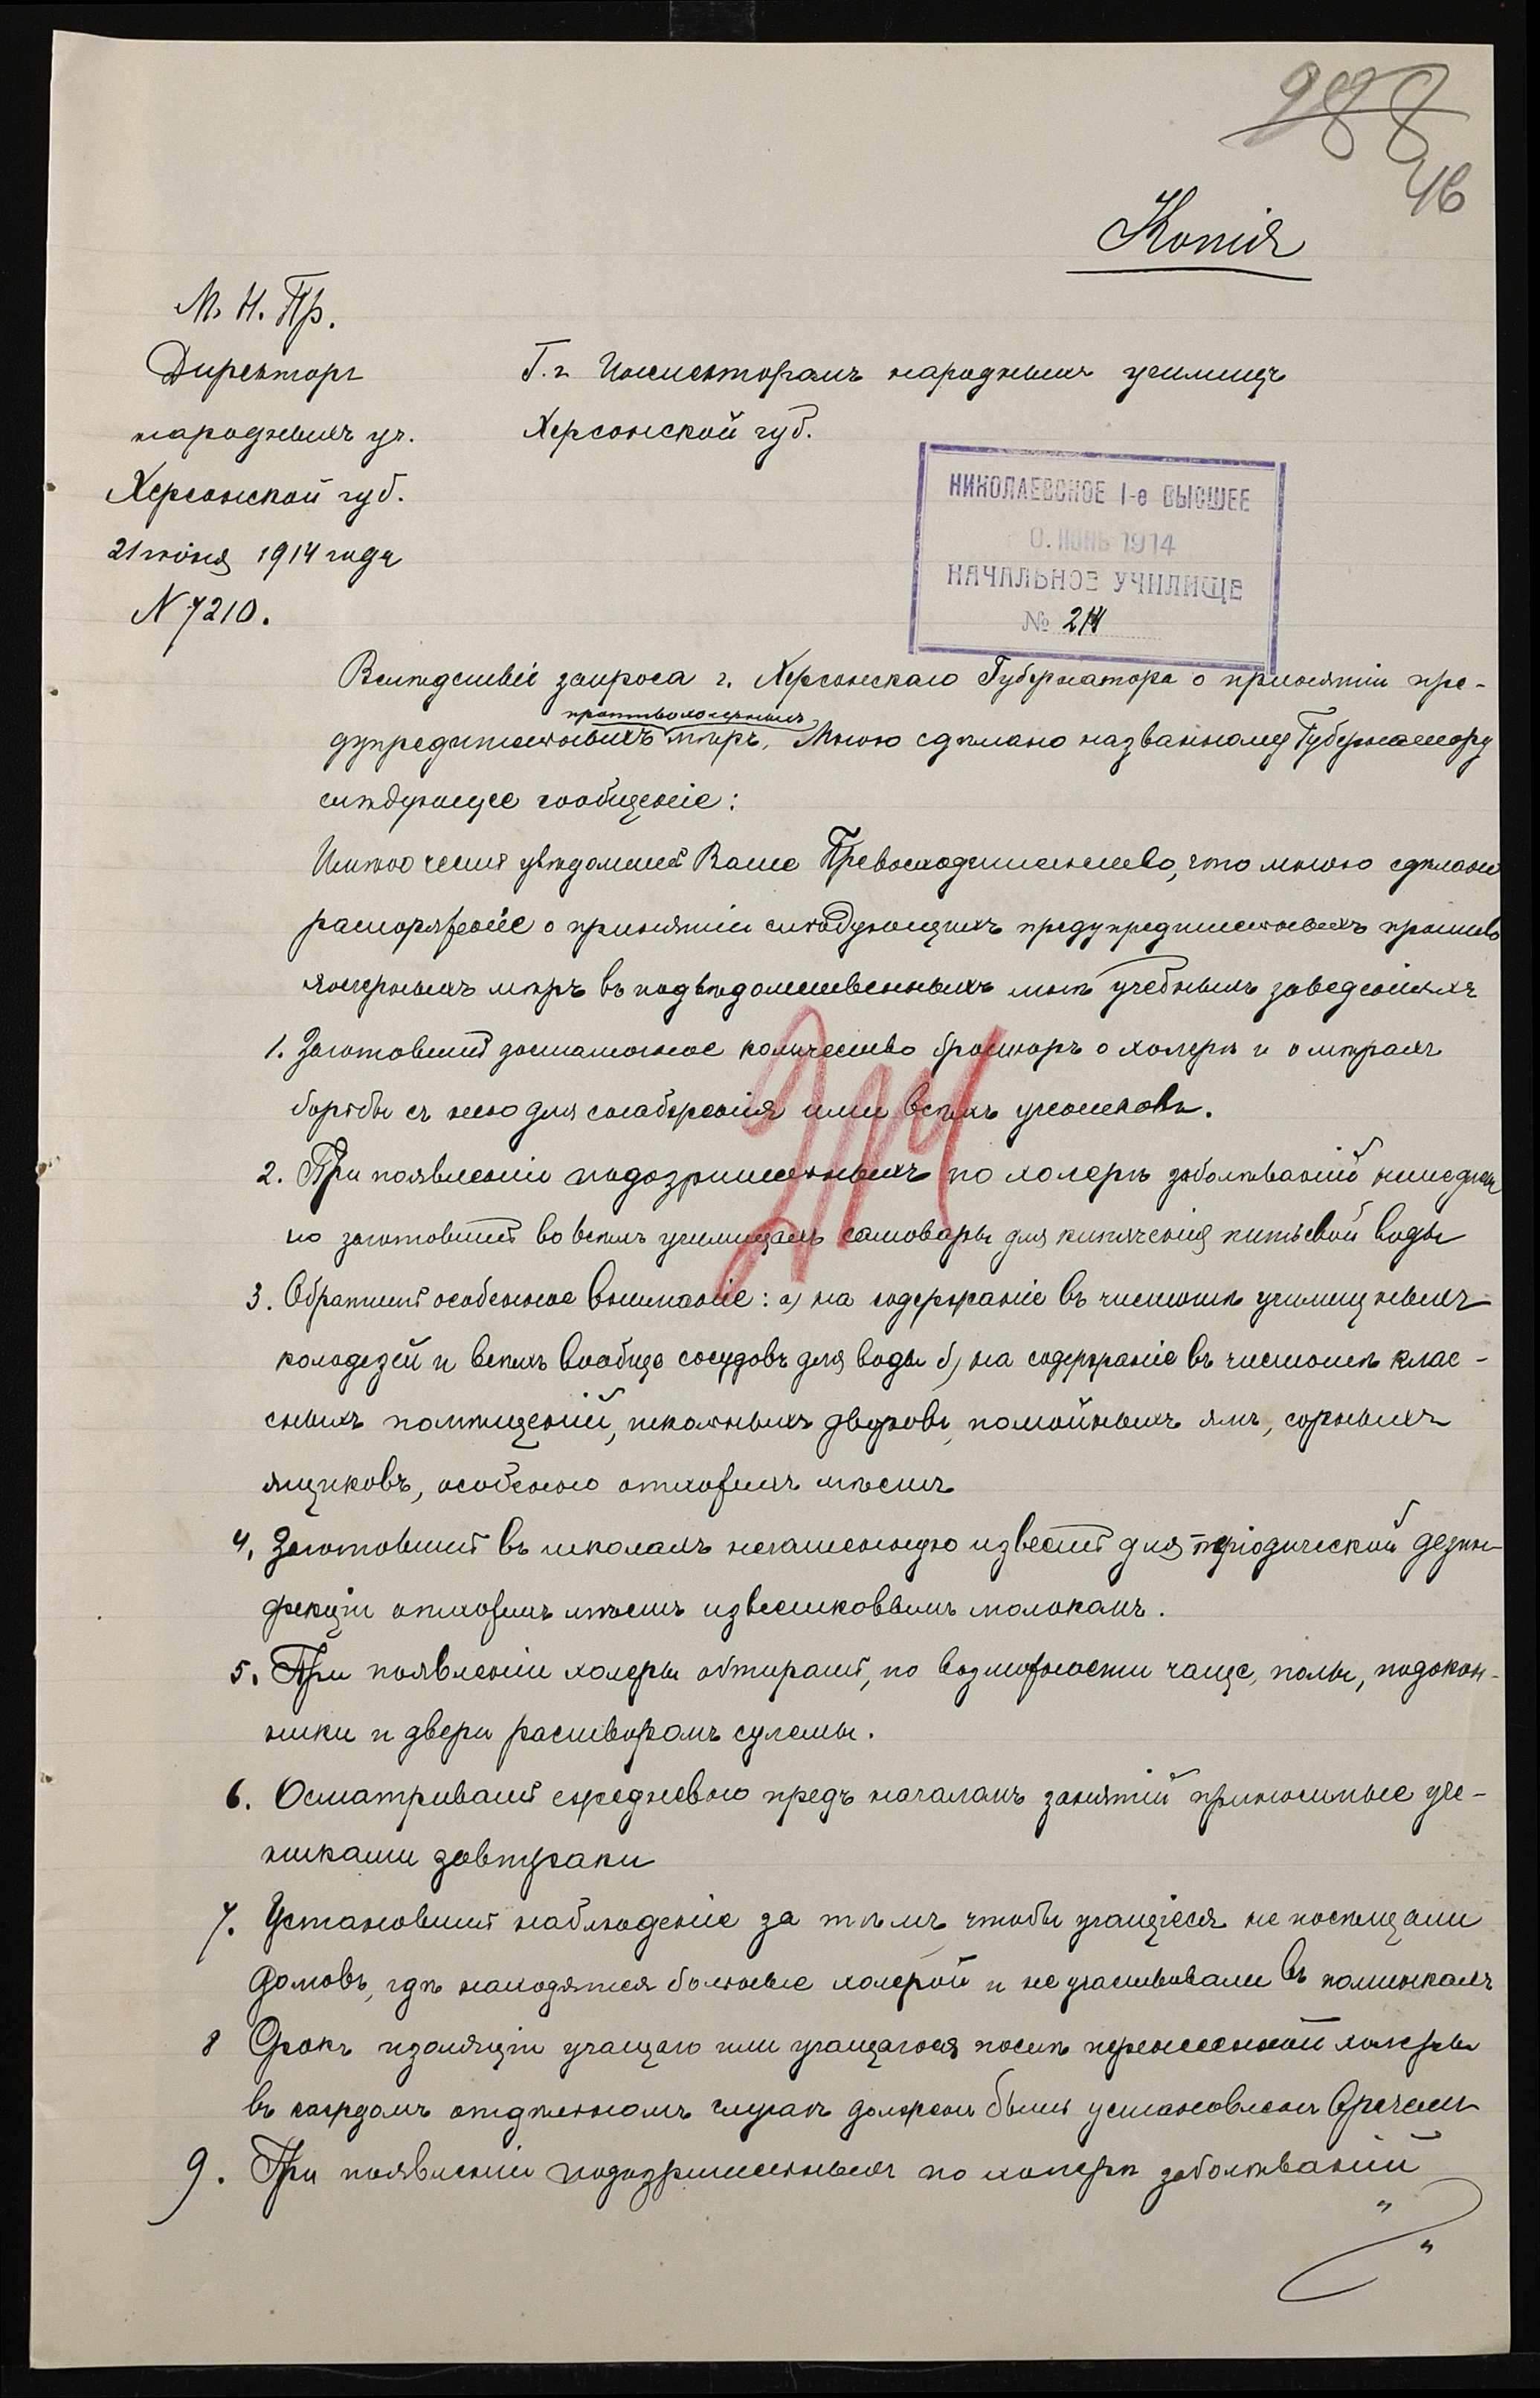 988
46
Копія
М. Н. Пр.
Директоръ
народныхъ уч.
Херсонской губ.
21 іюня 1914 года
N 7210.
Г.г. Инспекторамъ народныхъ училищъ
Херсонской губ.
НИКОЛАЕВСКОЕ 1-е ВЫСШЕЕ
0. ІЮНЬ 1914
НАЧАЛЬНОЕ УЧИЛИЩЕ
№ 214
Вслѣдствіе запроса г. Херсонскаго Губернатора о принятіи пре-
противохолерныхъ
дупредительныхъ мѣръ, Мною сдѣлано названному Губернатору
слѣдующее сообщеніе:
Имѣю честь увѣдомить Ваше Превосходительство, что мною сдѣлано
распоряженіе о принятіи слѣдующихъ предупредительныхъ противо
холерныхъ мѣръ въ подвѣдомственныхъ мнѣ учебныхъ заведеніяхъ
1. Заготовить достаточное количество брошюръ о холерѣ и о мѣрахъ
борьбы съ нею для снабженія ими всѣхъ учениковъ.
2. При появленіи подозрительныхъ по холерѣ заболѣваній немедлен
но заготовить во всѣхъ училищахъ самовары для кипяченія питьевой воды
3. Обратить особенное вниманіе: а) на содержаніе въ чистотѣ училищныхъ
колодезей и всѣхъ вообще сосудовъ для воды б) на содержаніе въ чистотѣ клас-
сныхъ помѣщеній, школьныхъ дворовъ, помойныхъ ямъ, сорныхъ
ящиковъ, особенно отхожихъ мѣстъ
4. Заготовить въ школахъ негашенную известь для періодической дезин-
фекціи отхожихъ мѣстъ известковымъ молокомъ.
5. При появленіи холеры обтирать, по возможности чаще, полы, подокон-
ники и двери растворомъ сулемы.
6. Осматривать ежедневно предъ началомъ занятій приносимые уче-
никами завтраки
7. Установить наблюденіе за тѣмъ, чтобы учащіеся не посѣщали
домовъ, гдѣ находятся больные холерой и не участвовали въ поминкахъ
8 Срокъ изоляціи учащаго или учащагося послѣ перенесенной холеры
въ каждомъ отдѣльномъ случаѣ долженъ быть установленъ врачемъ
9. При появленіи подозрительныхъ по холерѣ заболѣваній